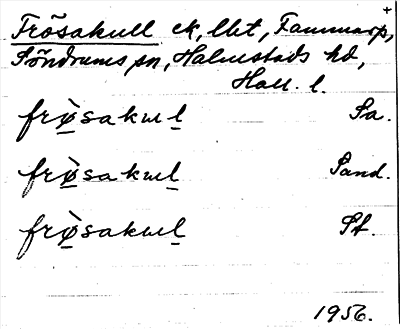 +
Frösakull ek, lht, Fammarp,
Söndrums sn, Halmstads hd,
Hall. l.
frø̀sakul Sa.
frø̀sakul Sand.
frø̀sakul St.
1956.